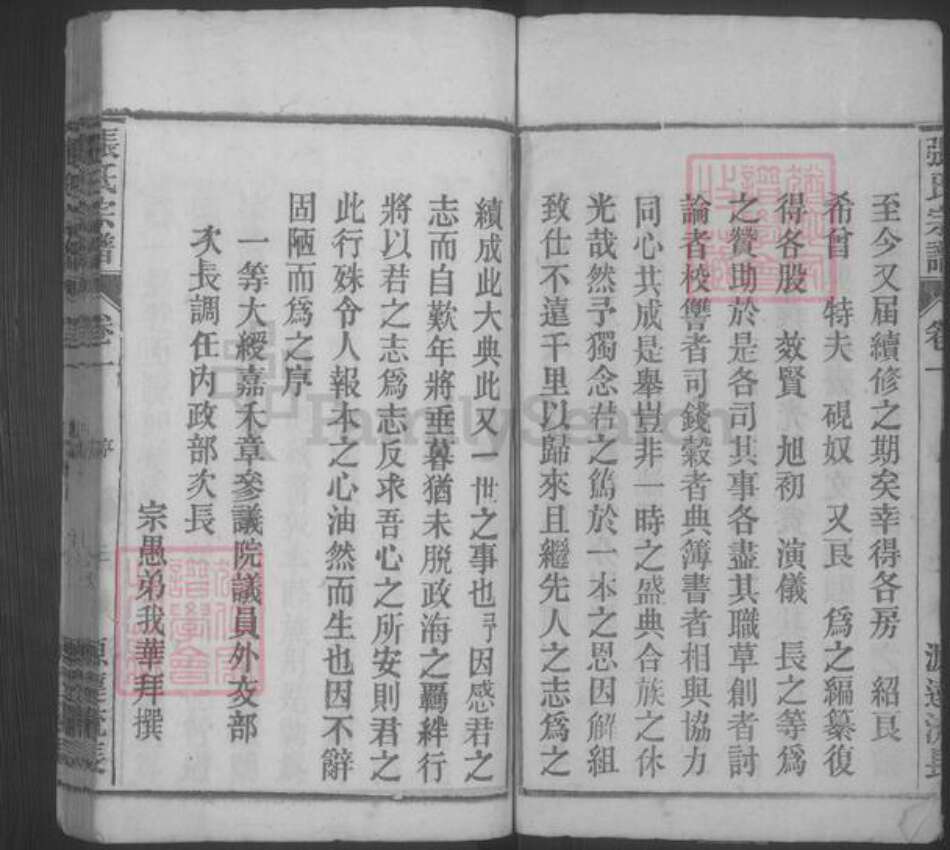 張氏宗譜 卷一 源遠流長
至今又屆續修之期矣幸得各房 紹良
希曾 特夫 硯奴 又良 爲之編纂復
得各股 效賢 旭初 演儀 長之等爲
之贊助於是各司其事各盡其職草創者討
論者校讐者司錢穀者典簿書者相與協力
同心共成是舉豈非一時之盛典合族之休
光哉然予獨念君之篤於一本之恩因解組
致仕不遠千里以歸來且繼先人之志爲之
續成此大典此又一世之事也予因感君之
志而自歎年將垂暮猶未脱政海之羈絆行
將以君之志爲志反求吾心之所安則君之
此行殊令人報本之心油然而生也因不辭
固陋而爲之序
一等大綬嘉禾章參議院議員外交部
次長調任內政部次長
宗愚弟我華拜撰
張氏宗譜 卷一 序 三 源遠流長
FamilySearch